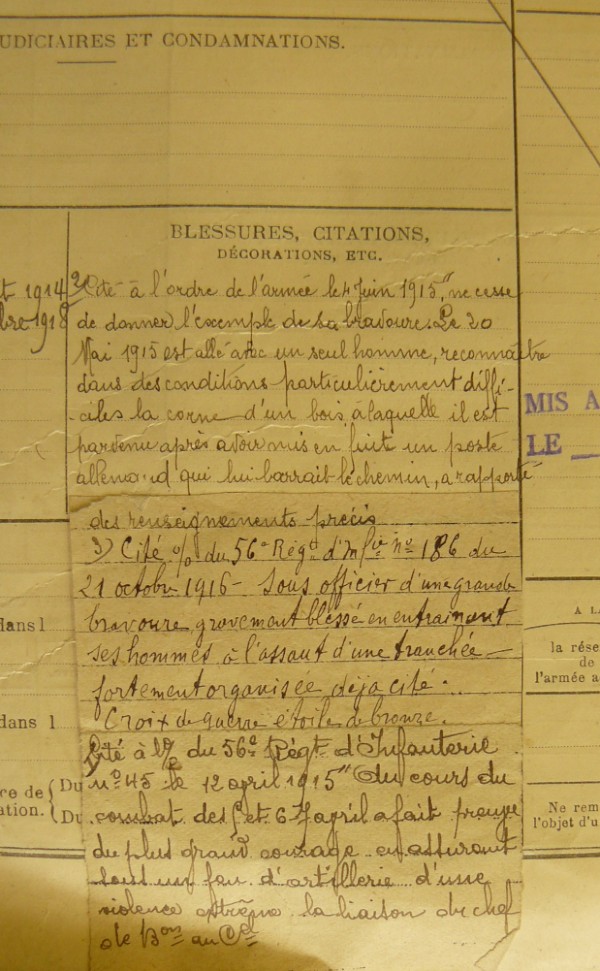 UDICIAIRES ET CONDAMNATIONS.
BLESSURES, CITATIONS,
DÉCORATIONS, ETC.
t 1914
bre 1918
2) Cité à l'ordre de l'armée le 4 Juin 1915, "ne cesse
de donner l'exemple de sa bravoure. Le 20
Mai 1915 est allé avec un seul homme, reconnaître
dans des conditions particulièrement diffi-
-ciles la corne d'un bois, à laquelle il est
parvenu après avoir mis en fuite un poste
allemand qui lui barrait le chemin, a rapporté
des renseignements précis
3) Cité o/o du 56e Régt d'Infie no 186 du
21 octobre 1916 - Sous officier d'une grande
bravoure, gravement blessé en entrainant
ses hommes à l'assaut d'une tranchée -
fortement organisée déja cité.
Croix de guerre étoile de bronze.
Cité à l'o/ du 56e Régt d'Infanterie
no 45 le 12 april 1915 "Au cours du
combat des 5 et 6 7 april a fait preuve
du plus grand courage en assurant
sous un feu d'artillerie d'une
violence extrême la liaison du chef
de Bon au Cel
MIS A
LE
dans l
dans l
re de
ation.
Du
Du
A LA
la rése
de
l'armée a
Ne rem
l'objet d'u